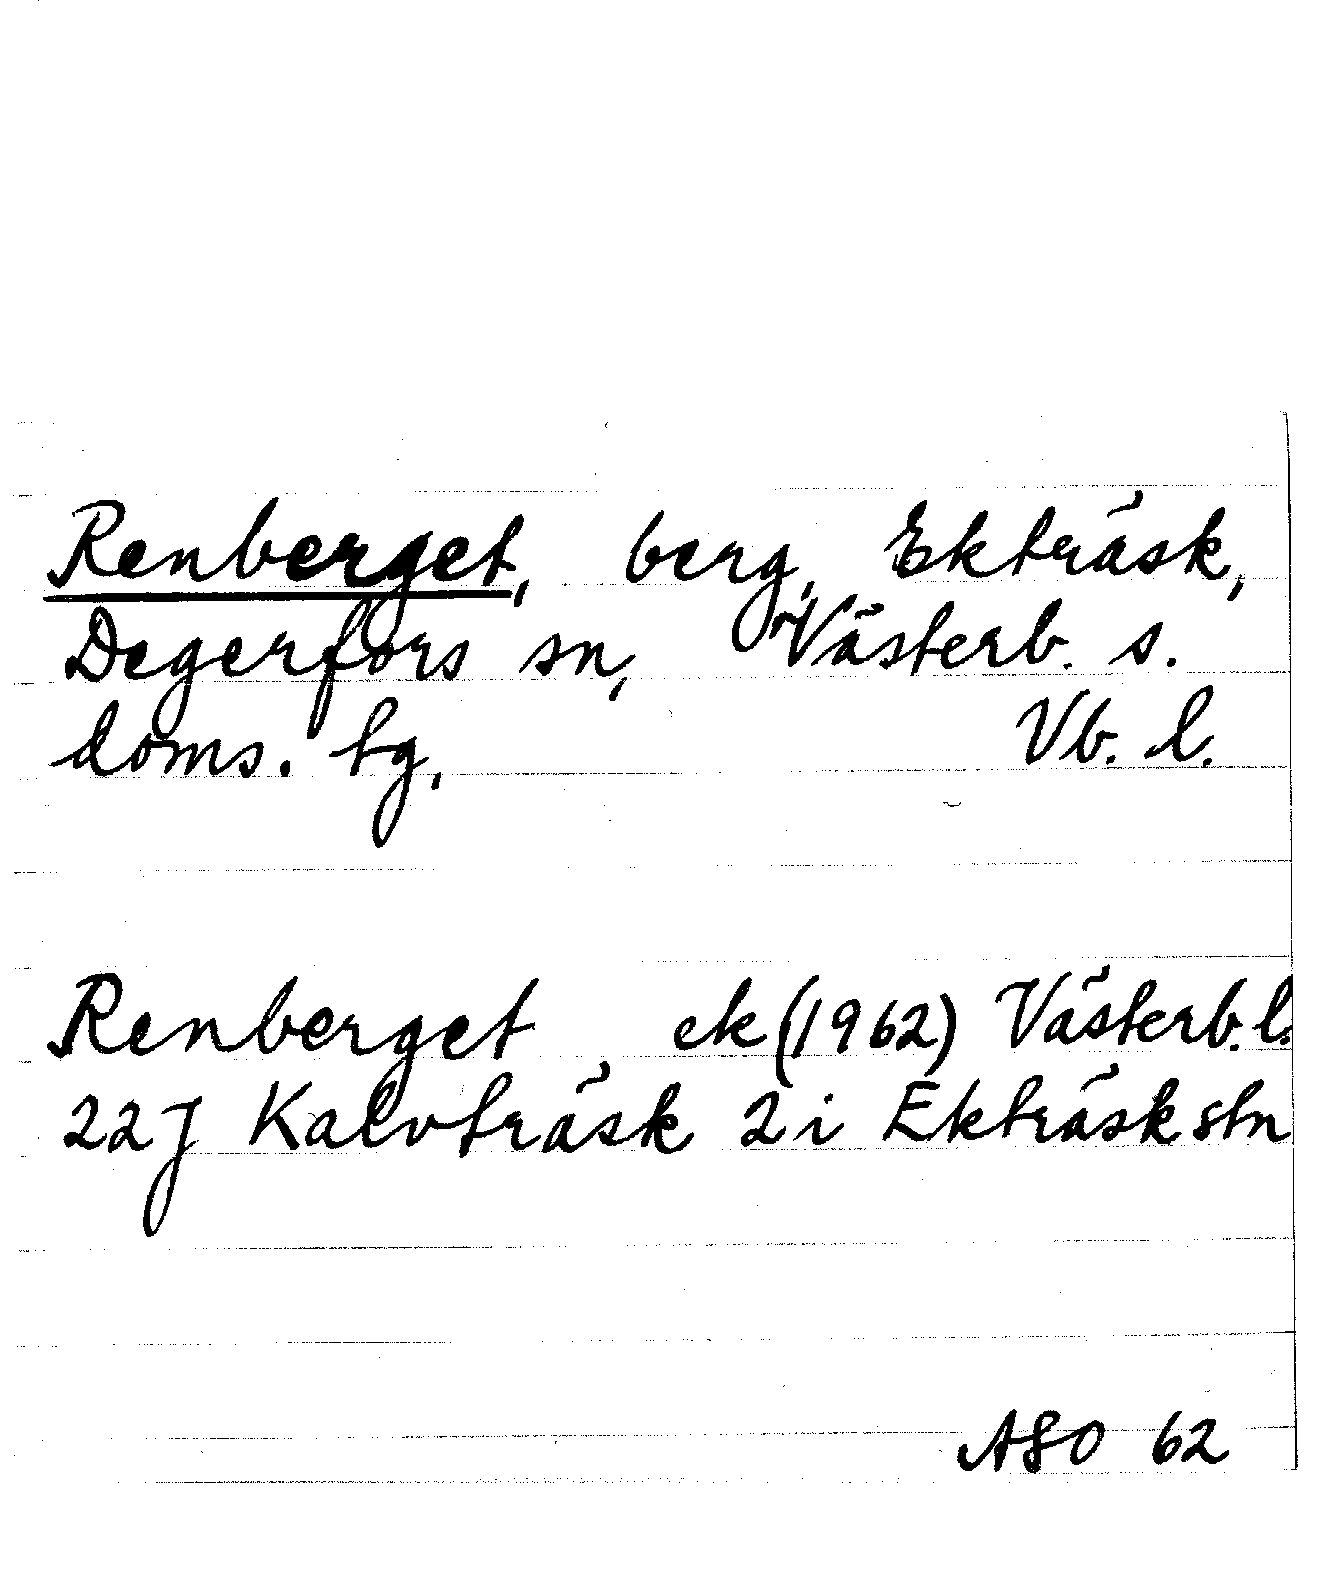 Renberget, berg, Ekträsk,
Degerfors sn, Västerb. s.
doms. tg, Vb. l.
Renberget ek (1962) Västerb. l.
22J Kalvträsk 2i Ekträsk stn
ASO 62